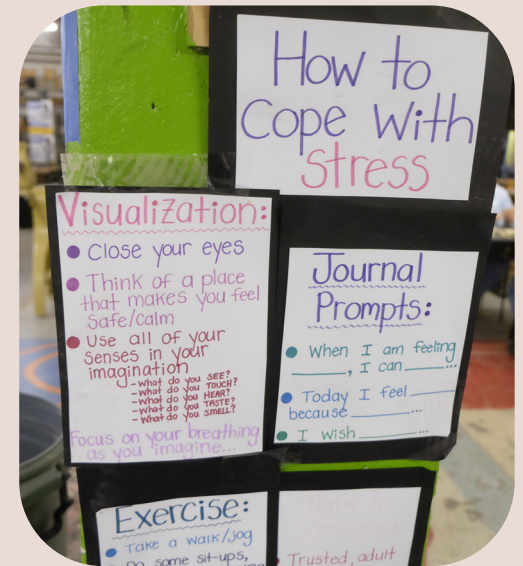 How to
Cope With
Stress
Visualization:
Close your eyes
Think of a place
that makes you feel
safe/calm
Use all of your
senses in your
imagination
-What do you SEE?
-What do you TOUCH?
-What do you HEAR?
-What do you TASTE?
-What do you SMELL?
Focus on your breathing
as you imagine...
Journal
Prompts:
When I am feeling
______, I can ____...
Today I feel ____
because ______...
I wish ______...
Exercise:
Take a walk/jog
Do some sit-ups,
Talk to
Trusted adult